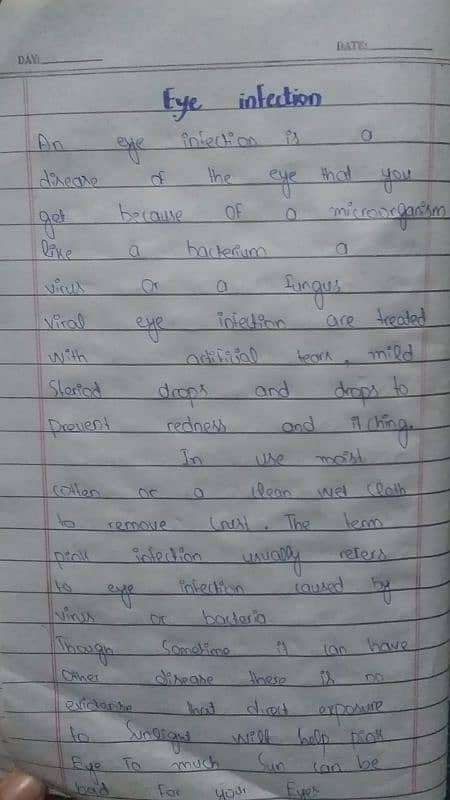 DAY:
DATE:
Eye infection
An eye infection is a
disease of the eye that you
get because of a microorganism
like a bacterium a
virus or a fungus
Viral eye infection are treated
with artificial tears, mild
Steriod drops and drops to
prevent redness and itching.
In use moist
cotten or a clean wet cloth
to remove crust. The term
pink infection usually refers
to eye infection caused by
virus or bacteria
Though Sometime it can have
other disease these is no
evidanse that direct exposure
to Sunlight will help pink
Eye To much Sun can be
bad for your Eyes